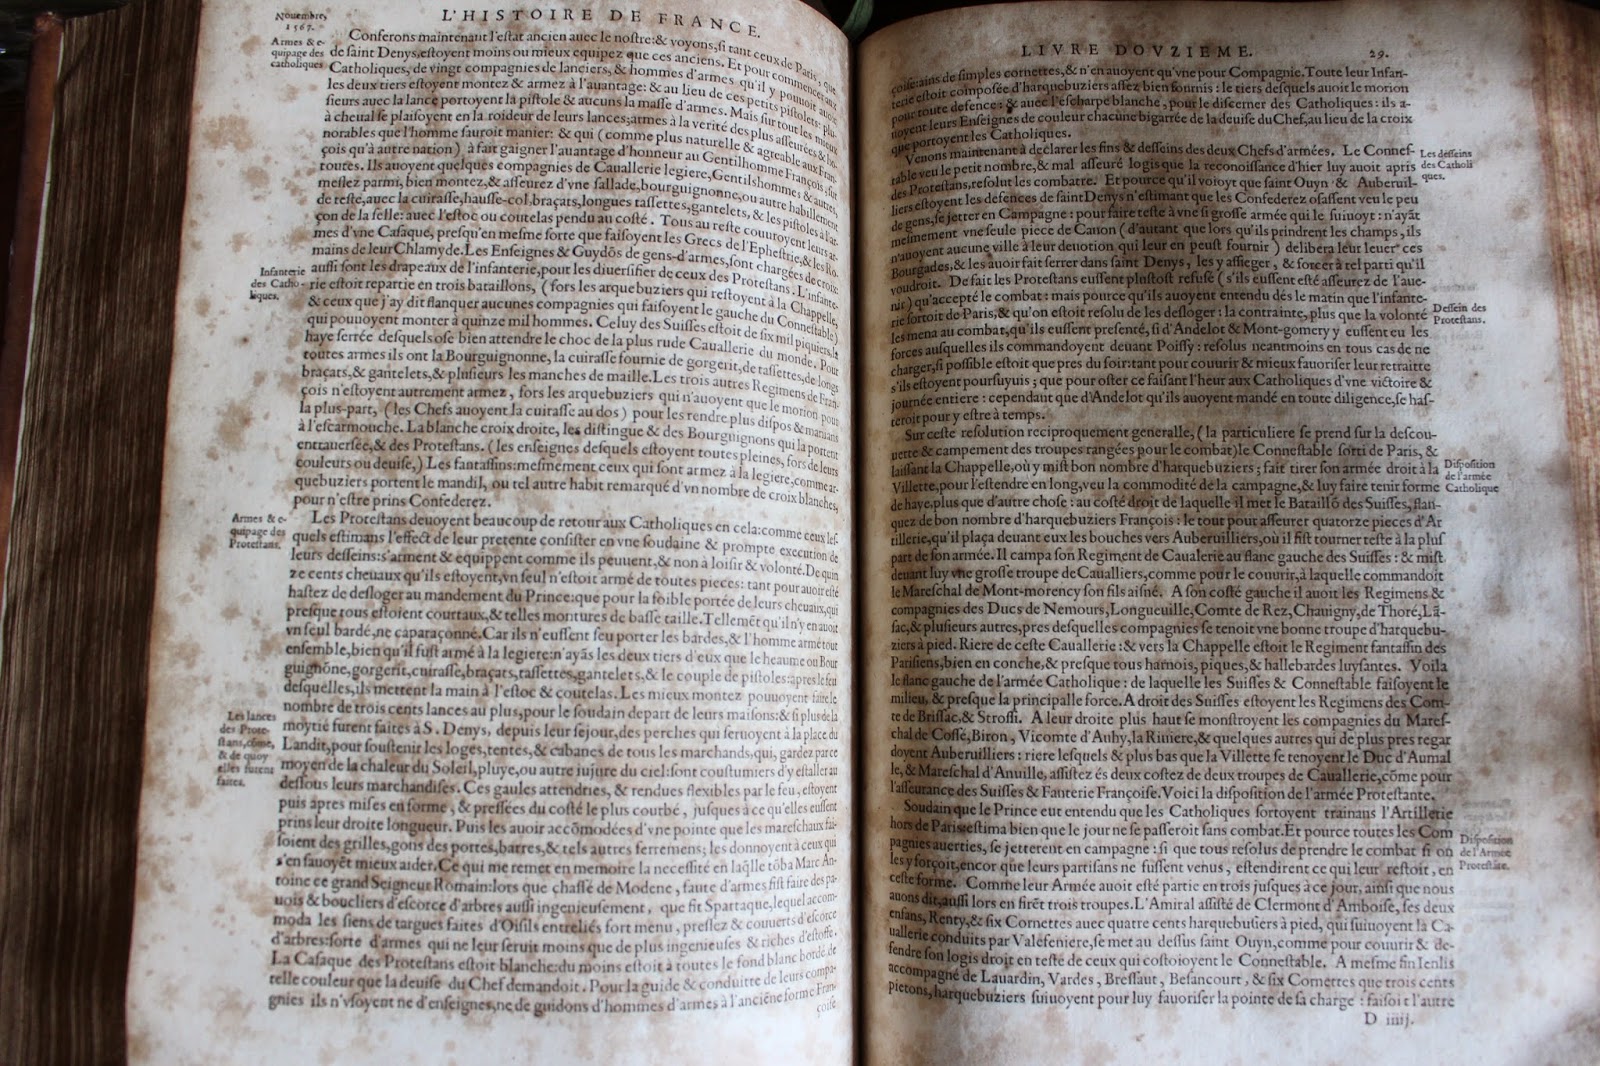 Nouembre,
1567.
L'HISTOIRE DE FRANCE.
Armes & e-
quipage des
catholiques
Conferons maintenant l'estat ancien auec le nostre:& voyons, si tant ceux de Paris, que
de saint Denys, estoyent moins ou mieux equipez que ces anciens. Et pour commencer aux
Catholiques, de vingt compagnies de lanciers, & hommes d'armes qu'il y pouuoit auoir
les deux tiers estoyent montez & armez à l'auantage: & au lieu de ces petits pistolets: plu-
sieurs auec la lance portoyent la pistole & aucuns la masse d'armes. Mais sur tout les mieux
à cheual se plaisoyent en la roideur de leurs lances: armes à la verité des plus asseurées & ho-
norables que l'homme sauroit manier: & qui (comme plus naturelle & agreable aux Fran-
çois qu'à autre nation) à fait gaigner l'auantage d'honneur au Gentilhomme François, sur
toutes. Ils auoyent quelques compagnies de Cauallerie legiere, Gentilshommes & autres,
meslez parmi, bien montez, & asseurez d'vne sallade, bourguignonne, ou autre habillement
de teste, auec la cuirasse, hausse-col, braçats, longues tassettes, gantelets, & les pistoles à l'ar-
çon de la selle: auec l'estoc ou coutelas pendu au costé. Tous au reste couuroyent leurs ar-
mes d'vne Casaque, presqu'en mesme sorte que faisoyent les Grecs de l'Ephestrie, & les Ro-
mains de leur Chlamyde. Les Enseignes & Guydõs de gens-d'armes, sont chargées de croix:
aussi sont les drapeaux de l'infanterie, pour les diuersifier de ceux des Protestans. L'infante-
Infanterie
des Catho-
liques.
rie estoit repartie en trois bataillons, (fors les arquebuziers qui restoyent à la Chappelle,
& ceux que j'ay dit flanquer aucunes compagnies qui faisoyent le gauche du Connestable)
qui pouuoyent monter à quinze mil hommes. Celuy des Suisses estoit de six mil piquiers, la
haye serrée desquels ose bien attendre le choc de la plus rude Cauallerie du monde. Pour
toutes armes ils ont la Bourguignonne, la cuirasse fournie de gorgerit, de tassettes, de longs
braçats, & gantelets, & plusieurs les manches de maille. Les trois autres Regimens de Fran-
çois n'estoyent autrement armez, fors les arquebuziers qui n'auoyent que le morion pour
la plus-part, (les Chefs auoyent la cuirasse au dos) pour les rendre plus dispos & manians
à l'escarmouche. La blanche croix droite, les distingue & des Bourguignons qui la portent
entrauersée, & des Protestans. (les enseignes desquels estoyent toutes pleines, fors de leurs
couleurs ou deuise,) Les fantassins: mesmement ceux qui sont armez à la legiere, comme ar-
quebuziers portent le mandil, ou tel autre habit remarqué d'vn nombre de croix blanches,
pour n'estre prins Confederez.
Armes & e-
quipage des
Protestans.
Les Protestans deuoyent beaucoup de retour aux Catholiques en cela: comme ceux les-
quels estimans l'effect de leur pretente consister en vne soudaine & prompte execution de
leurs desseins: s'arment & equippent comme ils peuuent, & non à loisir & volonté. De quin
ze cents cheuaux qu'ils estoyent, vn seul n'estoit armé de toutes pieces: tant pour auoir esté
hastez de desloger au mandement du Prince: que pour la foible portée de leurs cheuaux, qui
presque tous estoient courtaux, & telles montures de basse taille. Tellemēt qu'il n'y en auoit
vn seul bardé, ne caparaçonné. Car ils n'eussent seu porter les bardes, & l'homme armé tout
ensemble, bien qu'il fust armé à la legiere: n'ayãs les deux tiers d'eux que le heaume ou Bour
guignõne, gorgerit, cuirasse, braçats, tassettes, gantelets, & le couple de pistoles: apres le feu
desquelles, ils mettent la main à l'estoc & coutelas. Les mieux montez pouuoyent faire le
nombre de trois cents lances au plus, pour le soudain depart de leurs maisons: & si plus de la
Les lances
des Prote-
stans, cõme,
& de quoy
elles furent
faites.
moytié furent faites à S. Denys, depuis leur sejour, des perches qui seruoyent à la place du
Landit, pour soustenir les loges, tentes, & cabanes de tous les marchands, qui, gardez par ce
moyen de la chaleur du Soleil, pluye, ou autre iujure du ciel: sont coustumiers d'y estaller au
dessous leurs marchandises. Ces gaules attendries, & rendues flexibles par le feu, estoyent
puis apres mises en forme, & pressées du costé le plus courbé, jusques à ce qu'elles eussent
prins leur droite longueur. Puis les auoir accõmodées d'vne pointe que les mareschaux fai-
soient des grilles, gons des portes, barres, & tels autres ferremens; les donnoyent à ceux qui
s'en sauoyēt mieux aider. Ce qui me remet en memoire la necessité en laqlle tõba Marc An-
toine ce grand Seigneur Romain: lors que chassé de Modene, faute d'armes fist faire des pa-
uois & boucliers d'escorce d'arbres aussi ingenieusement, que fit Spartaque, lequel accom-
moda les siens de targues faites d'Oisils entreliés fort menu, pressez & couuerts d'escorce
d'arbres: sorte d'armes qui ne leur seruit moins que de plus ingenieuses & riches d'estoffe.
La Casaque des Protestans estoit blanche: du moins estoit à toutes le fond blanc bordé de
telle couleur que la deuise du Chef demandoit. Pour la guide & conduitte de leurs compa-
gnies ils n'vsoyent ne d'enseignes, ne de guidons d'hommes d'armes à l'anciēne forme Fran
çoise
LIVRE DOVZIEME.
29.
çoise: ains de simples cornettes, & n'en auoyent qu'vne pour Compagnie. Toute leur Infan-
terie estoit composée d'harquebuziers assez bien fournis: le tiers desquels auoit le morion
pour toute defence: & auec l'escharpe blanche, pour le discerner des Catholiques: ils a-
uoyent leurs Enseignes de couleur chacune bigarrée de la deuise du Chef, au lieu de la croix
que portoyent les Catholiques.
Venons maintenant à declarer les fins & desseins des deux Chefs d'armées. Le Connes-
Les desseins
des Catholi
ques.
table veu le petit nombre, & mal asseuré logis que la reconoissance d'hier luy auoit apris
des Protestans, resolut les combatre. Et pource qu'il voioyt que saint Ouyn & Auberuil-
liers estoyent les défences de saint Denys n'estimant que les Confederez osassent veu le peu
de gens, se jetter en Campagne: pour faire teste à vne si grosse armée qui le suiuoyt: n'ayãt
mesmement vne seule piece de Canon (d'autant que lors qu'ils prindrent les champs, ils
n'auoyent aucune ville à leur deuotion qui leur en peust fournir) delibera leur leuer ces
Bourgades, & les auoir fait serrer dans saint Denys, les y assieger, & forcer à tel parti qu'il
voudroit. De fait les Protestans eussent plustost refusé (s'ils eussent esté asseurez de l'aue-
nir) qu'accepté le combat: mais pource qu'ils auoyent entendu dés le matin que l'infante-
Dessein des
Protestans.
rie sortoit de Paris, & qu'on estoit resolu de les desloger: la contrainte, plus que la volonté
les mena au combat, qu'ils eussent presenté, si d'Andelot & Mont-gomery y eussent eu les
forces ausquelles ils commandoyent deuant Poissy: resolus neantmoins en tous cas de ne
charger, si possible estoit que pres du soir: tant pour couurir & mieux fauoriser leur retraitte
s'ils estoyent poursuyuis; que pour oster ce faisant l'heur aux Catholiques d'vne victoire &
journée entiere: cependant que d'Andelot qu'ils auoyent mandé en toute diligence, se has-
teroit pour y estre à temps.
Sur ceste resolution reciproquement generalle, (la particuliere se prend sur la descou-
uerte & campement des troupes rangées pour le combat) le Connestable sorti de Paris, &
Disposition
de l'armée
Catholique
laissant la Chappelle, où y mist bon nombre d'harquebuziers; fait tirer son armée droit à la
Villette, pour l'estendre en long, veu la commodité de la campagne, & luy faire tenir forme
de haye, plus que d'autre chose: au costé droit de laquelle il met le Bataillõ des Suisses, flan-
quez de bon nombre d'harquebuziers François: le tout pour asseurer quatorze pieces d'Ar
tillerie, qu'il plaça deuant eux les bouches vers Auberuilliers, où il fist tourner teste à la plus
part de son armée. Il campa son Regiment de Caualerie au flanc gauche des Suisses: & mist
deuant luy vne grosse troupe de Caualliers, comme pour le couurir, à laquelle commandoit
le Mareschal de Mont-morency son fils aisné. A son costé gauche il auoit les Regimens &
compagnies des Ducs de Nemours, Longueuille, Comte de Rez, Chauigny, de Thoré, Lã-
sac, & plusieurs autres, pres desquelles compagnies se tenoit vne bonne troupe d'harquebu-
ziers à pied. Riere de ceste Cauallerie: & vers la Chappelle estoit le Regiment fantassin des
Parisiens, bien en conche, & presque tous harnois, piques, & hallebardes luysantes. Voila
le flanc gauche de l'armée Catholique: de laquelle les Suisses & Connestable faisoyent le
milieu, & presque la principalle force. A droit des Suisses estoyent les Regimens des Com-
te de Brissac, & Strossi. A leur droite plus haut se monstroyent les compagnies du Mares-
chal de Cossé, Biron, Vicomte d'Auhy, la Riuiere, & quelques autres qui de plus pres regar
doyent Auberuilliers: riere lesquels & plus bas que la Villette se tenoyent le Duc d'Aumal
le, & Mareschal d'Anuille, assistez és deux costez de deux troupes de Cauallerie, cõme pour
l'asseurance des Suisses & Fanterie Françoise. Voici la disposition de l'armée Protestante.
Soudain que le Prince eut entendu que les Catholiques sortoyent trainans l'Artillerie
hors de Paris: estima bien que le jour ne se passeroit sans combat. Et pource toutes les Com
Disposition
de l'Armée
Protestãte.
pagnies auerties, se jetterent en campagne: si que tous resolus de prendre le combat si on
les y forçoit, encor que leurs partisans ne fussent venus, estendirent ce qui leur restoit, en
ceste forme. Comme leur Armée auoit esté partie en trois jusques à ce jour, ainsi que nous
auons dit, aussi lors en firēt trois troupes. L'Amiral assisté de Clermont d'Amboise, ses deux
enfans, Renty, & six Cornettes auec quatre cents harquebusiers à pied, qui suiuoyent la Ca-
uallerie conduits par Valefeniere, se met au dessus saint Ouyn, comme pour couurir & de-
fendre son logis droit en teste de ceux qui costoioyent le Connestable. A mesme fin Ienlis
accompagné de Lauardin, Vardes, Bressaut, Besancourt, & six Cornettes que trois cents
pietons, harquebuziers suiuoyent pour luy fauoriser la pointe de sa charge: faisoit l'autre
D iiij.